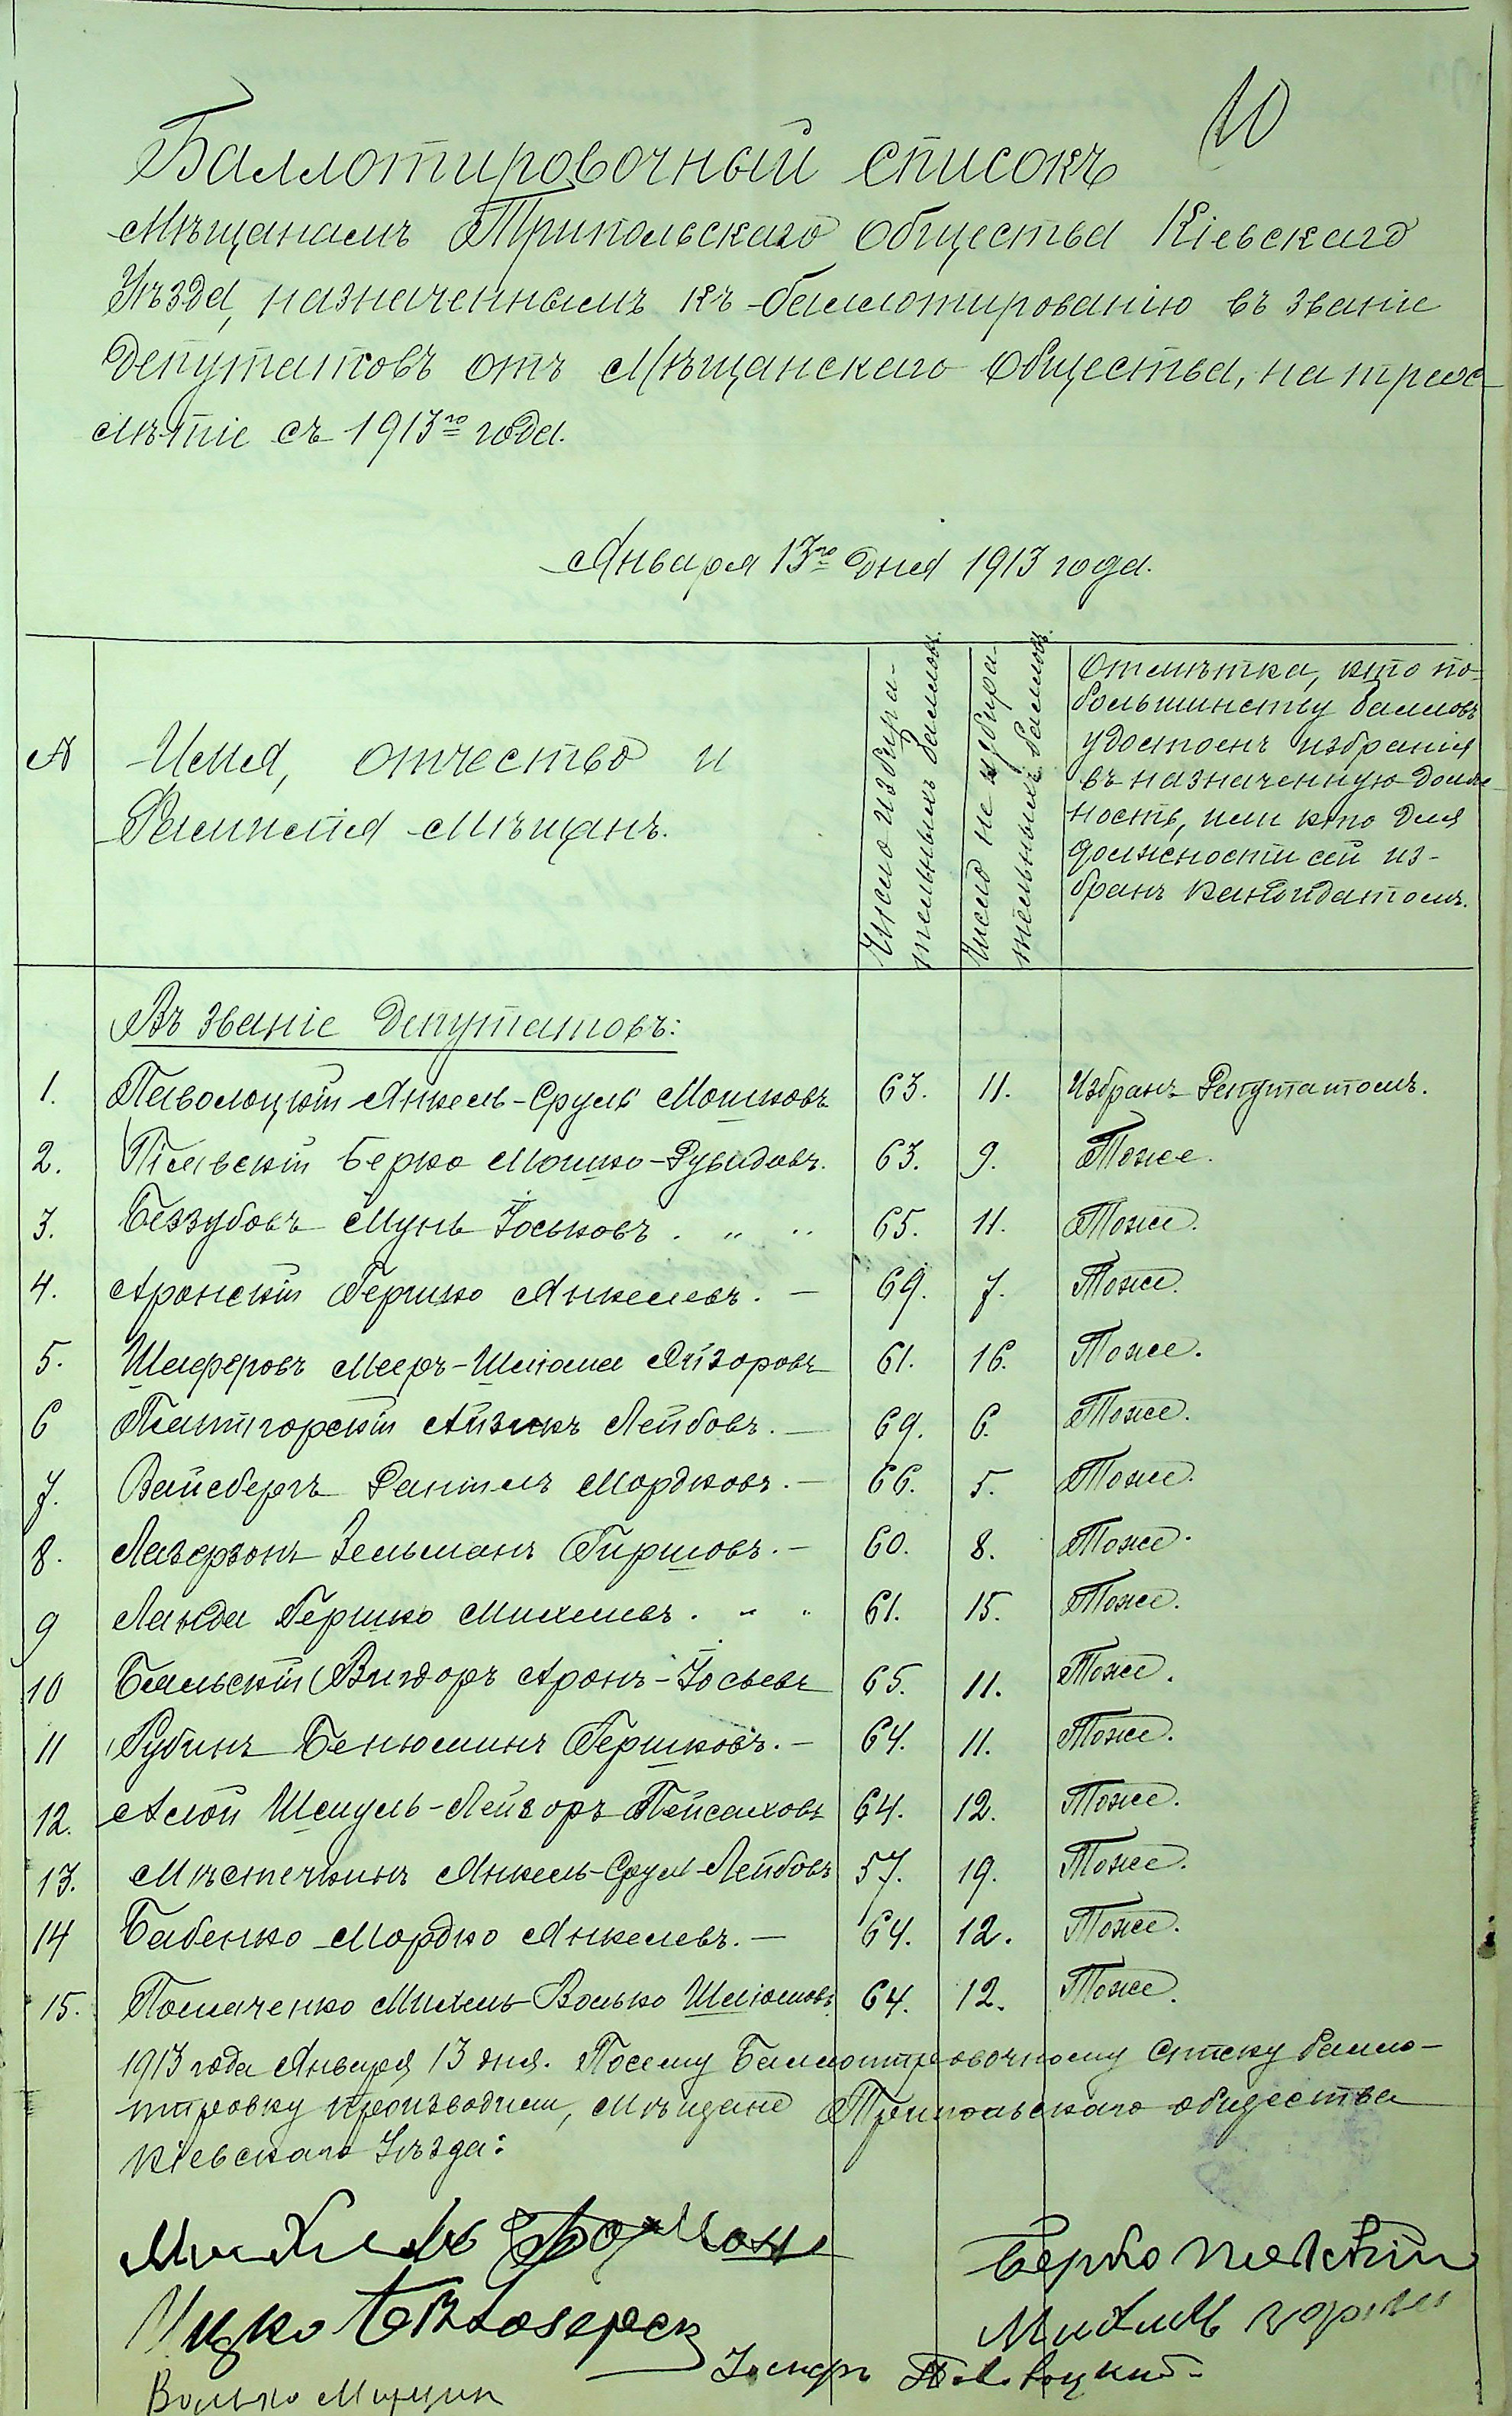 10
Баллотировочный списокъ
Мѣщанамъ Трипольскаго общества Кіевскаго
Уѣзда, назначеннымъ къ баллотированію въ званіе
Депутатовъ отъ Мѣщанскаго Общества, на трех-
лѣтіе съ 1913го года.
Января 13го дня 1913 года.
№
Имя, отчество и
Фамилія Мѣщанъ.
Число избира-
тельныхъ балловъ.
Число не избира-
тельныхъ балловъ.
Отмѣтка, кто по
большинству балловъ
удостоенъ избранія
въ назначенную долж-
ность, или кто для
должности сей из-
бранъ кандидатомъ.
Въ званіе депутатовъ:
1. Паволоцкій Янкель-Сруль Мошковъ 63. 11. Избранъ Депутатомъ.
2. Пілявскій Берко Мошко-Дувидовъ. 63. 9. Тоже.
3. Беззубовъ Мунь Іоськовъ . " .. 65. 11. Тоже.
4. Аронскій Гершко Янкелевъ. — 69. 7. Тоже.
5. Шаферовъ Мееръ-Шлiома Лейзоровъ 61. 16. Тоже.
6 Пятигорскій Айзикъ Лейбовъ. — 69. 6. Тоже.
7. Вайсбергъ Даніилъ Мордковъ. — 66. 5. Тоже.
8. Лазарзонъ Зельманъ Гиршовъ. — 60. 8. Тоже.
9 Ланда Гершко Михелевъ. " " 61. 15. Тоже.
10 Бяльскій Вигдоръ Аронъ-Іосьевъ 65. 11. Тоже.
11 Рубинъ Бенюминъ Гершковъ. — 64. 11. Тоже.
12. Аслой Шмуль-Лейзоръ Пейсаховъ 64. 12. Тоже.
13. Мѣстечкинъ Янкель-Сруль Лейбовъ 57. 19. Тоже.
14 Бабенко Мордко Янкелевъ. — 64. 12. Тоже.
15. Помаченко Михель-Волько Шлiомовъ 64. 12. Тоже.
1913 года Января 13 дня. По сему Баллотировочному списку балло-
тировку производили, Мѣщане Трипольскаго общества
Кіевскаго Уѣзда:
Михель
Берко Пелявскій
Ицко Бѣлозерск
Михель
Іосифъ Паволоцкій
Волько